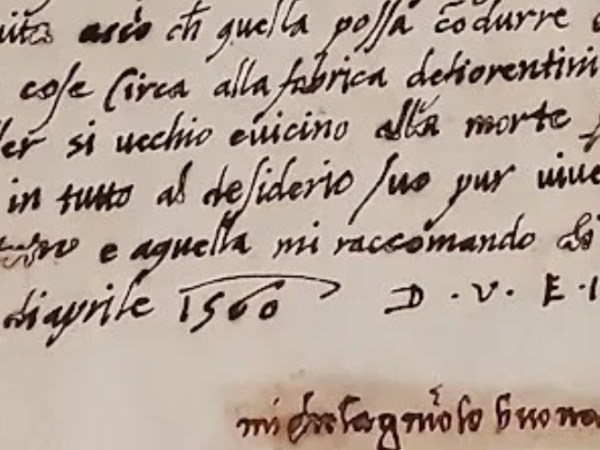 uita acciò ch quella possa codurre
cose circa alla fabrica de fiorentini
si uechio e uicino alla morte
in tutto al desiderio suo pur uiue
e a quella mi raccomando di
di aprile 1560 D. V. E. I
michelagniolo buona